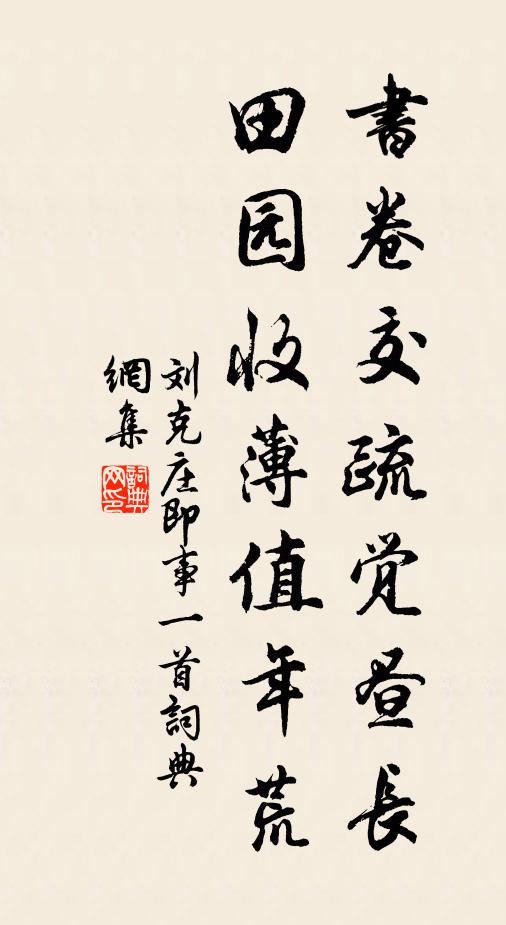 書卷交疏觉昼長
田园收薄值年荒
刘克庄即事一首詞典
網集
詞典
网印